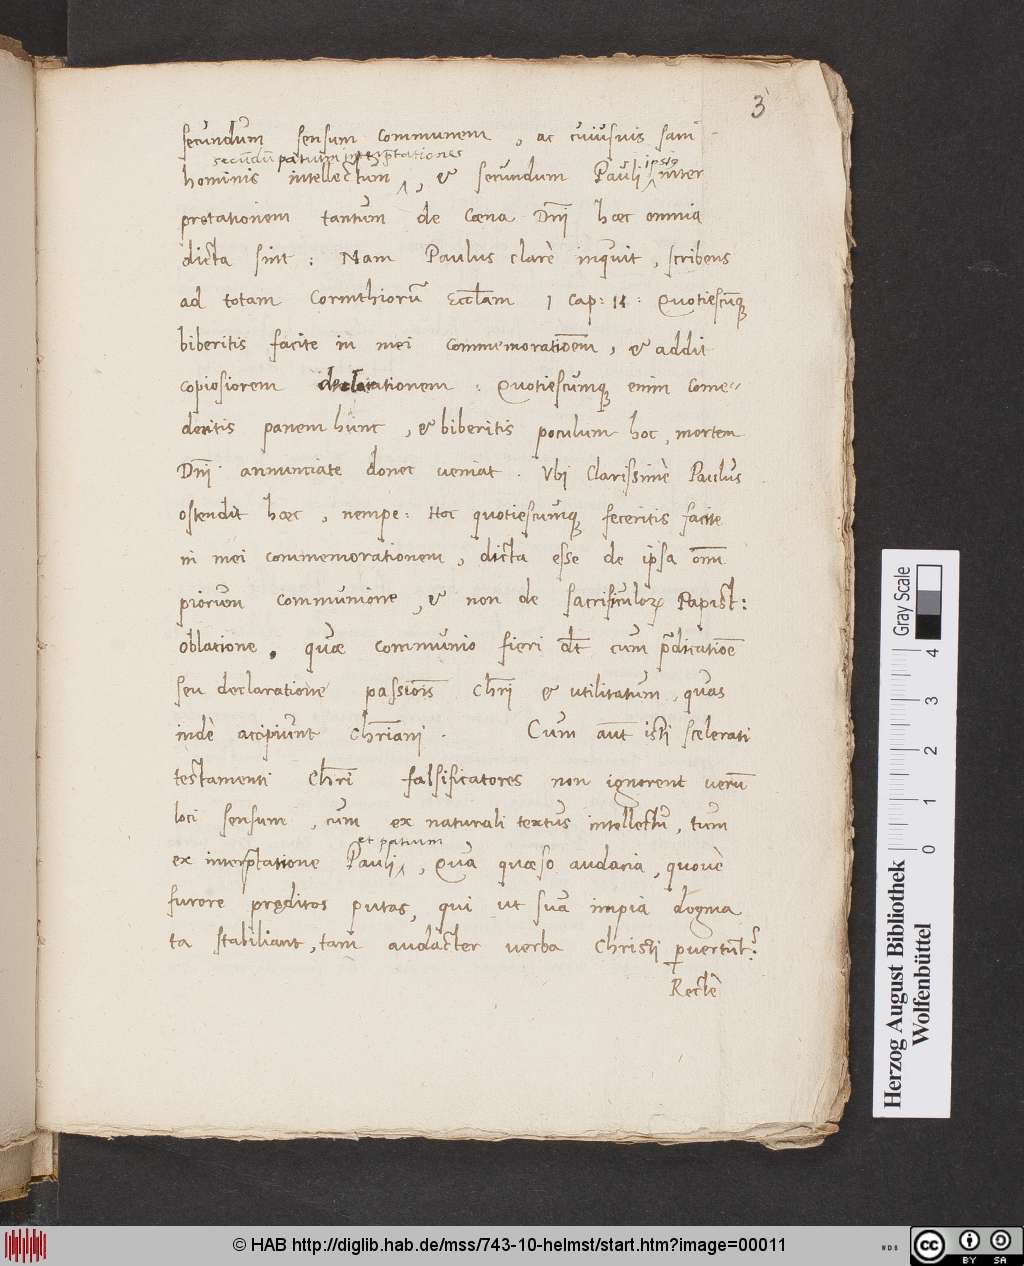 3
secundum sensum communem, ac cuiusuis sani
secundũ patrum interptationes
hominis intellectum ^, & secundum Pauli ^ ipsiq inter
pretationem tantum de Cœna Dñi hæc omnia
dicta sint : Nam Paulus clarè inquit, scribens
ad totam Corinthiorũ Eccl̃am 1 Cap: 11 : Quotiescũq
biberitis facite in mei commemoratiõem, & addit
copiosiorem declarationem : Quotiescumq enim come=
deritis panem hunc, & biberitis poculum hoc, mortem
Dñi annunciate donec ueniat. Vbi Clarissimè Paulus
ostendit hæc, nempe: Hoc quotiescumq feceritis facite
in mei commemorationem, dicta esse de ipsa om̃i
piorum communione, & non de sacrificuloꝝ Papist:
oblatione, quæ communio fieri d̃t cum p̃dicatiõe
seu declaratione passiõis Chr̃i & utilitatum, quas
indè accipiunt Chr̃iani. Cum aũt isti scelerati
testamenti Chr̃i falsificatores non ignorent uerũ
loci sensum, cum ex naturali textus intellectu, tum
et patrum
ex interptatione Pauli ^, Quã quæso audacia, quouè
furore pręditos putas, qui ut suã impia dogma
ta stabiliant, tam audacter uerba Christi puertunt?
Rectè
Gray Scale
0 1 2 3 4
Herzog August Bibliothek
Wolfenbüttel
© HAB http://diglib.hab.de/mss/743-10-helmst/start.htm?image=00011
cc BY SA